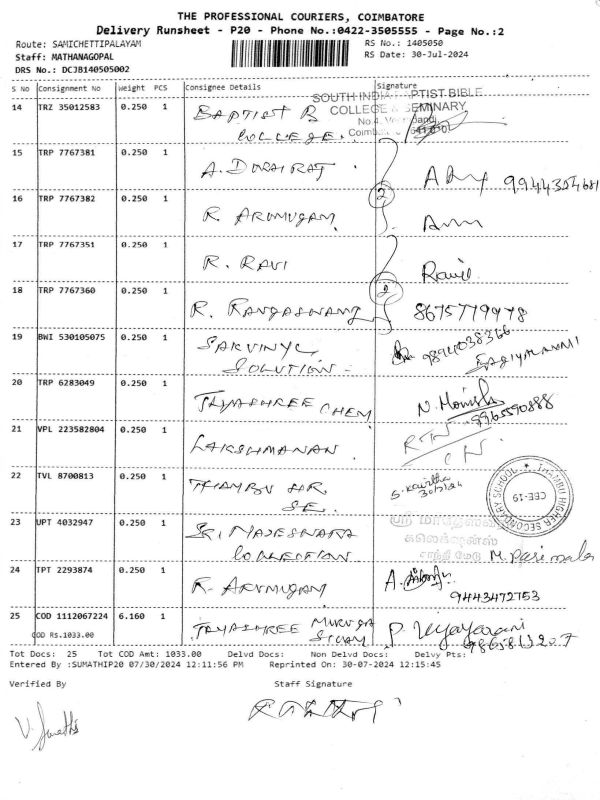 THE PROFESSIONAL COURIERS, COIMBATORE
Delivery Runsheet - P20 - Phone No.:0422-3505555 - Page No.:2
Route: SAMICHETTIPALAYAM
RS No.: 1405050
Staff: MATHANAGOPAL
RS Date: 30-Jul-2024
DRS No.: DCJB140505002
S No Consignment No Weight PCS Consignee Details Signature
14 TRZ 35012583 0.250 1 BAPTIST B
COLLEGE.
SOUTH INDIA BAPTIST BIBLE
COLLEGE & SEMINARY
15 TRP 7767381 0.250 1 A. DURAIRAJ
16 TRP 7767382 0.250 1 R. ARUMUGAM
2
17 TRP 7767351 0.250 1 R. RAVI
18 TRP 7767360 0.250 1 R. RANGASWAMY 8675779478
2
19 BWI 530105075 0.250 1 9894038366
SOLUTION
20 TRP 6283049 0.250 1 JAYASHREE CHEM
9965590888
21 VPL 223582804 0.250 1 LAKSHMANAN
22 TVL 8700813 0.250 1 THAMBU HR.
SE.
S. Kavitha
30/7/24
THAMBU HIGHER SECONDARY SCHOOL
CEE-19
23 UPT 4032947 0.250 1 SRI. MAJESWARA
COLLECTION
கலெக்ஷன்ஸ்
24 TPT 2293874 0.250 1 R. ARUMUGAM
9443472753
25 COD 1112067224 6.160 1 JAYASHREE MURUGA
COD Rs.1033.00
Tot Docs: 25 Tot COD Amt: 1033.00 Delvd Docs: Non Delvd Docs: Delvy Pts:
Entered By :SUMATHIP20 07/30/2024 12:11:56 PM Reprinted On: 30-07-2024 12:15:45
Verified By Staff Signature